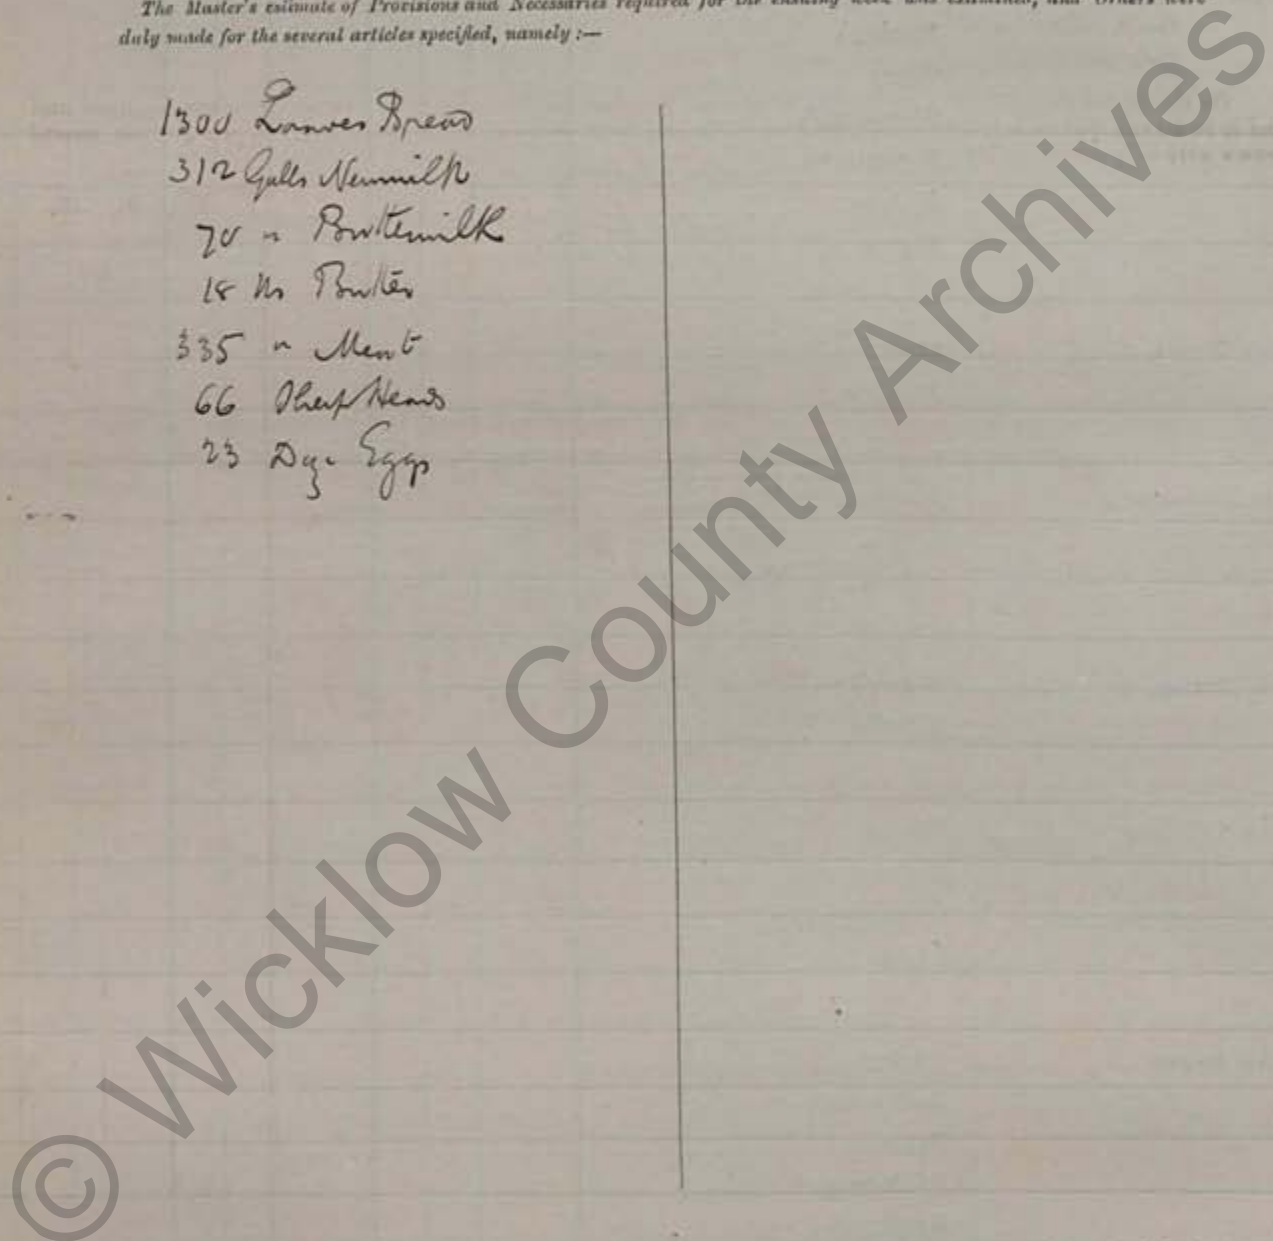 The Master's estimate of Provisions and Necessaries required for the ensuing week was examined, and Orders were
duly made for the several articles specified, namely :—
1300 Loaves Bread
312 Galls Newmilk
70 " Buttermilk
18 lbs Butter
335 " Meat
66 Sheep Heads
23 Doz Eggs
© Wicklow County Archives